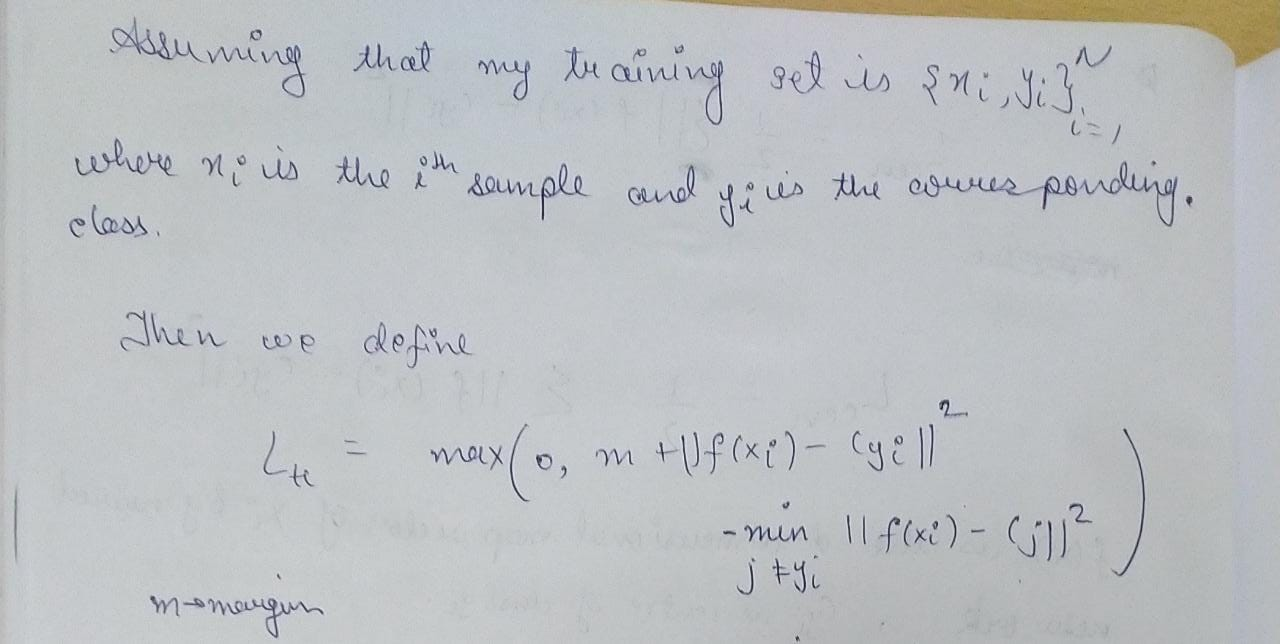 Assuming that my training set is {xi, yi}^N_i=1
where xi is the ith sample and yi is the courresponding.
class.
Then we define
Ltc = max(0, m + ||f(xi) - Cyi||^2
- min_j≠yi ||f(xi) - Cj||^2)
m → margin